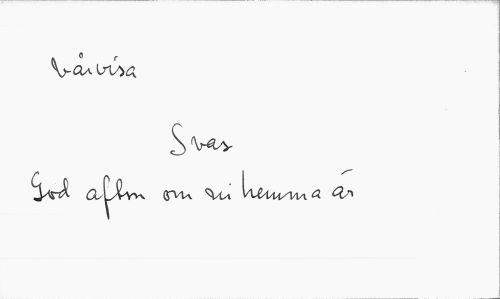 Vårvisa
Svar
God afton om ni hemma är